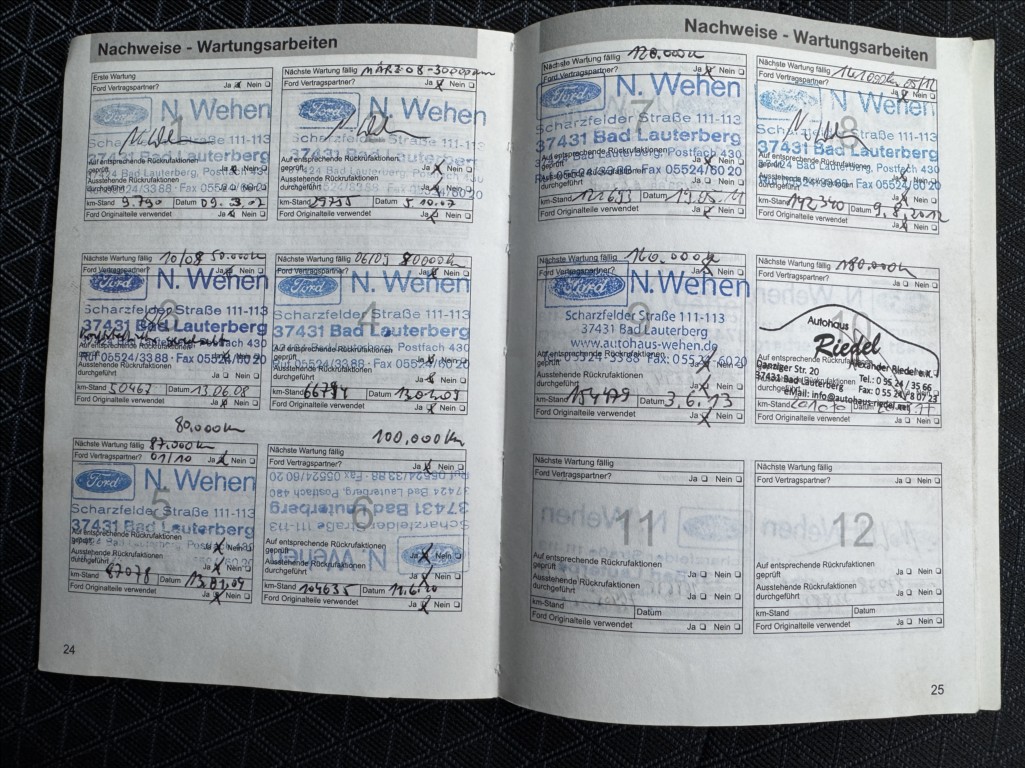 Nachweise - Wartungsarbeiten
Erste Wartung
Ford Vertragspartner? Ja Nein
Ford N. Wehen
Scharzfelder Straße 111-113
37431 Bad Lauterberg
Auf entsprechende Rückrufaktionen geprüft
Ausstehende Rückrufaktionen durchgeführt
km-Stand 9.790 Datum
Ford Originalteile verwendet Ja Nein
Nächste Wartung fällig MÄRZ 08 - 30000 km
Ford Vertragspartner? Ja Nein
Ford N. Wehen
2
Scharzfelder Straße 111-113
37431 Bad Lauterberg
Auf entsprechende Rückrufaktionen geprüft
Ausstehende Rückrufaktionen durchgeführt Ja Nein
km-Stand 29735 Datum 5.10.07
Ford Originalteile verwendet Ja Nein
Nächste Wartung fällig 10/08 50.000km
Ford Vertragspartner? Ja Nein
Ford N. Wehen
3
Scharzfelder Straße 111-113
37431 Bad Lauterberg
Ruf 05524/3388 · Fax 05524/6020
Ausstehende Rückrufaktionen durchgeführt
km-Stand 50467 Datum 13.06.08
Ford Originalteile verwendet Ja Nein
Nächste Wartung fällig 06/09 80000km
Ford Vertragspartner? Ja Nein
Ford N. Wehen
4
Scharzfelder Straße 111-113
37431 Bad Lauterberg
Auf entsprechende Rückrufaktionen geprüft
Ausstehende Rückrufaktionen durchgeführt Ja Nein
km-Stand Datum
Ford Originalteile verwendet Ja Nein
80.000km
Nächste Wartung fällig 87.000km
Ford Vertragspartner? 01/10 Ja Nein
Ford N. Wehen
5
Scharzfelder Straße 111-113
37431 Bad Lauterberg
Auf entsprechende Rückrufaktionen geprüft Ja Nein
Ausstehende Rückrufaktionen durchgeführt Ja Nein
km-Stand 87078 Datum
Ford Originalteile verwendet Ja Nein
100,000km
Nächste Wartung fällig
Ford Vertragspartner? Ja Nein
6
Scharzfelder Straße 111-113
37431 Bad Lauterberg
Ford N. Wehen
Auf entsprechende Rückrufaktionen geprüft Ja Nein
Ausstehende Rückrufaktionen durchgeführt Ja Nein
km-Stand 104635 Datum
Ford Originalteile verwendet Ja Nein
24
Nachweise - Wartungsarbeiten
Nächste Wartung fällig 120.000km
Ford Vertragspartner? Ja Nein
Ford N. Wehen
7
Scharzfelder Straße 111-113
37431 Bad Lauterberg
Auf entsprechende Rückrufaktionen geprüft
Ruf 05524/3388 · Fax 05524/6020
Ausstehende Rückrufaktionen durchgeführt Ja Nein
km-Stand Datum
Ford Originalteile verwendet Ja Nein
Nächste Wartung fällig
Ford Vertragspartner? Ja Nein
Ford N. Wehen
8
Scharzfelder Straße 111-113
37431 Bad Lauterberg
Auf entsprechende Rückrufaktionen geprüft
Ausstehende Rückrufaktionen durchgeführt Ja Nein
km-Stand 142340 Datum 9.8.2012
Ford Originalteile verwendet Ja Nein
Nächste Wartung fällig 160.000km
Ford Vertragspartner? Ja Nein
Ford N. Wehen
9
Scharzfelder Straße 111-113
37431 Bad Lauterberg
www.autohaus-wehen.de
Ruf 05524-3388 Fax: 05524-6020
Ausstehende Rückrufaktionen durchgeführt Ja Nein
km-Stand Datum 3.6.13
Ford Originalteile verwendet Ja Nein
Nächste Wartung fällig 180.000km
Ford Vertragspartner? Ja Nein
10
Autohaus
Riedel
Alexander Riedel e.K.
Auf entsprechende Rückrufaktionen
Danziger Str. 20
37431 Bad Lauterberg
Tel.: 0 55 24 / 35 66
Fax: 0 55 24 / 8 07 23
eMail: info@autohaus-riedel.net
km-Stand
Ford Originalteile verwendet Ja Nein
Nächste Wartung fällig
Ford Vertragspartner? Ja Nein
11
Auf entsprechende Rückrufaktionen geprüft Ja Nein
Ausstehende Rückrufaktionen durchgeführt Ja Nein
km-Stand Datum
Ford Originalteile verwendet Ja Nein
Nächste Wartung fällig
Ford Vertragspartner? Ja Nein
12
Auf entsprechende Rückrufaktionen geprüft Ja Nein
Ausstehende Rückrufaktionen durchgeführt Ja Nein
km-Stand Datum
Ford Originalteile verwendet Ja Nein
25